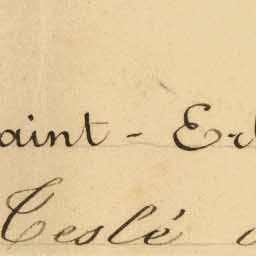 aint - Er
Ceslé